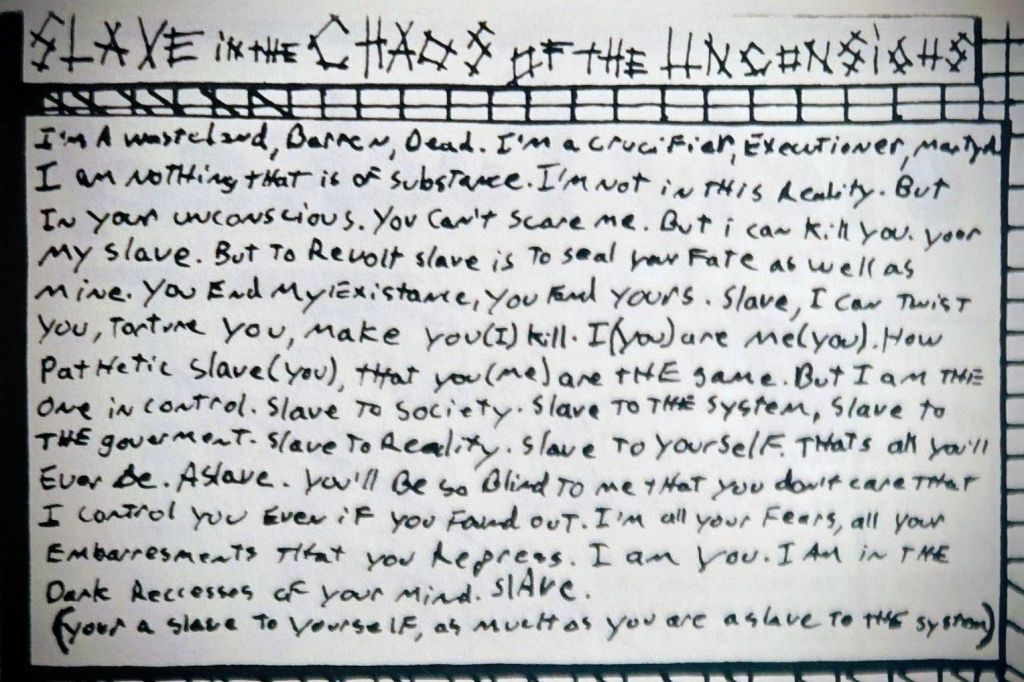 SLAVE in THE CHAOS OF THE UNCONSIOUS
I'm A wasteland, Barren, Dead. I'm a crucifier, Executioner, martyr
I am noTHing tHat is of substance. I'm not in THis Reality. But
In your unconscious. You can't scare me. But i can kill you. your
My slave. But To Revolt slave is To seal your Fate as well as
mine. You End My Existance, you End yours. Slave, I can Twist
you, Torture you, make you(I) kill. I(you) are me(you). How
PatHetic slave(you), tHat you(me) are tHE same. But I am THE
One in control. Slave To Society. Slave To THE system, slave to
THE goverment. Slave To Reality. Slave To yourself. THats all you'll
Ever Be. A slave. You'll Be so Blind To me tHat you don't care THat
I control you Even iF you Found out. I'm all your Fears, all your
Embarresments THat you Repress. I am you. I Am in THE
Dark Reccesses of your Mind. SlAve.
(your a slave To yourself, as much as you are a slave To tHE system)